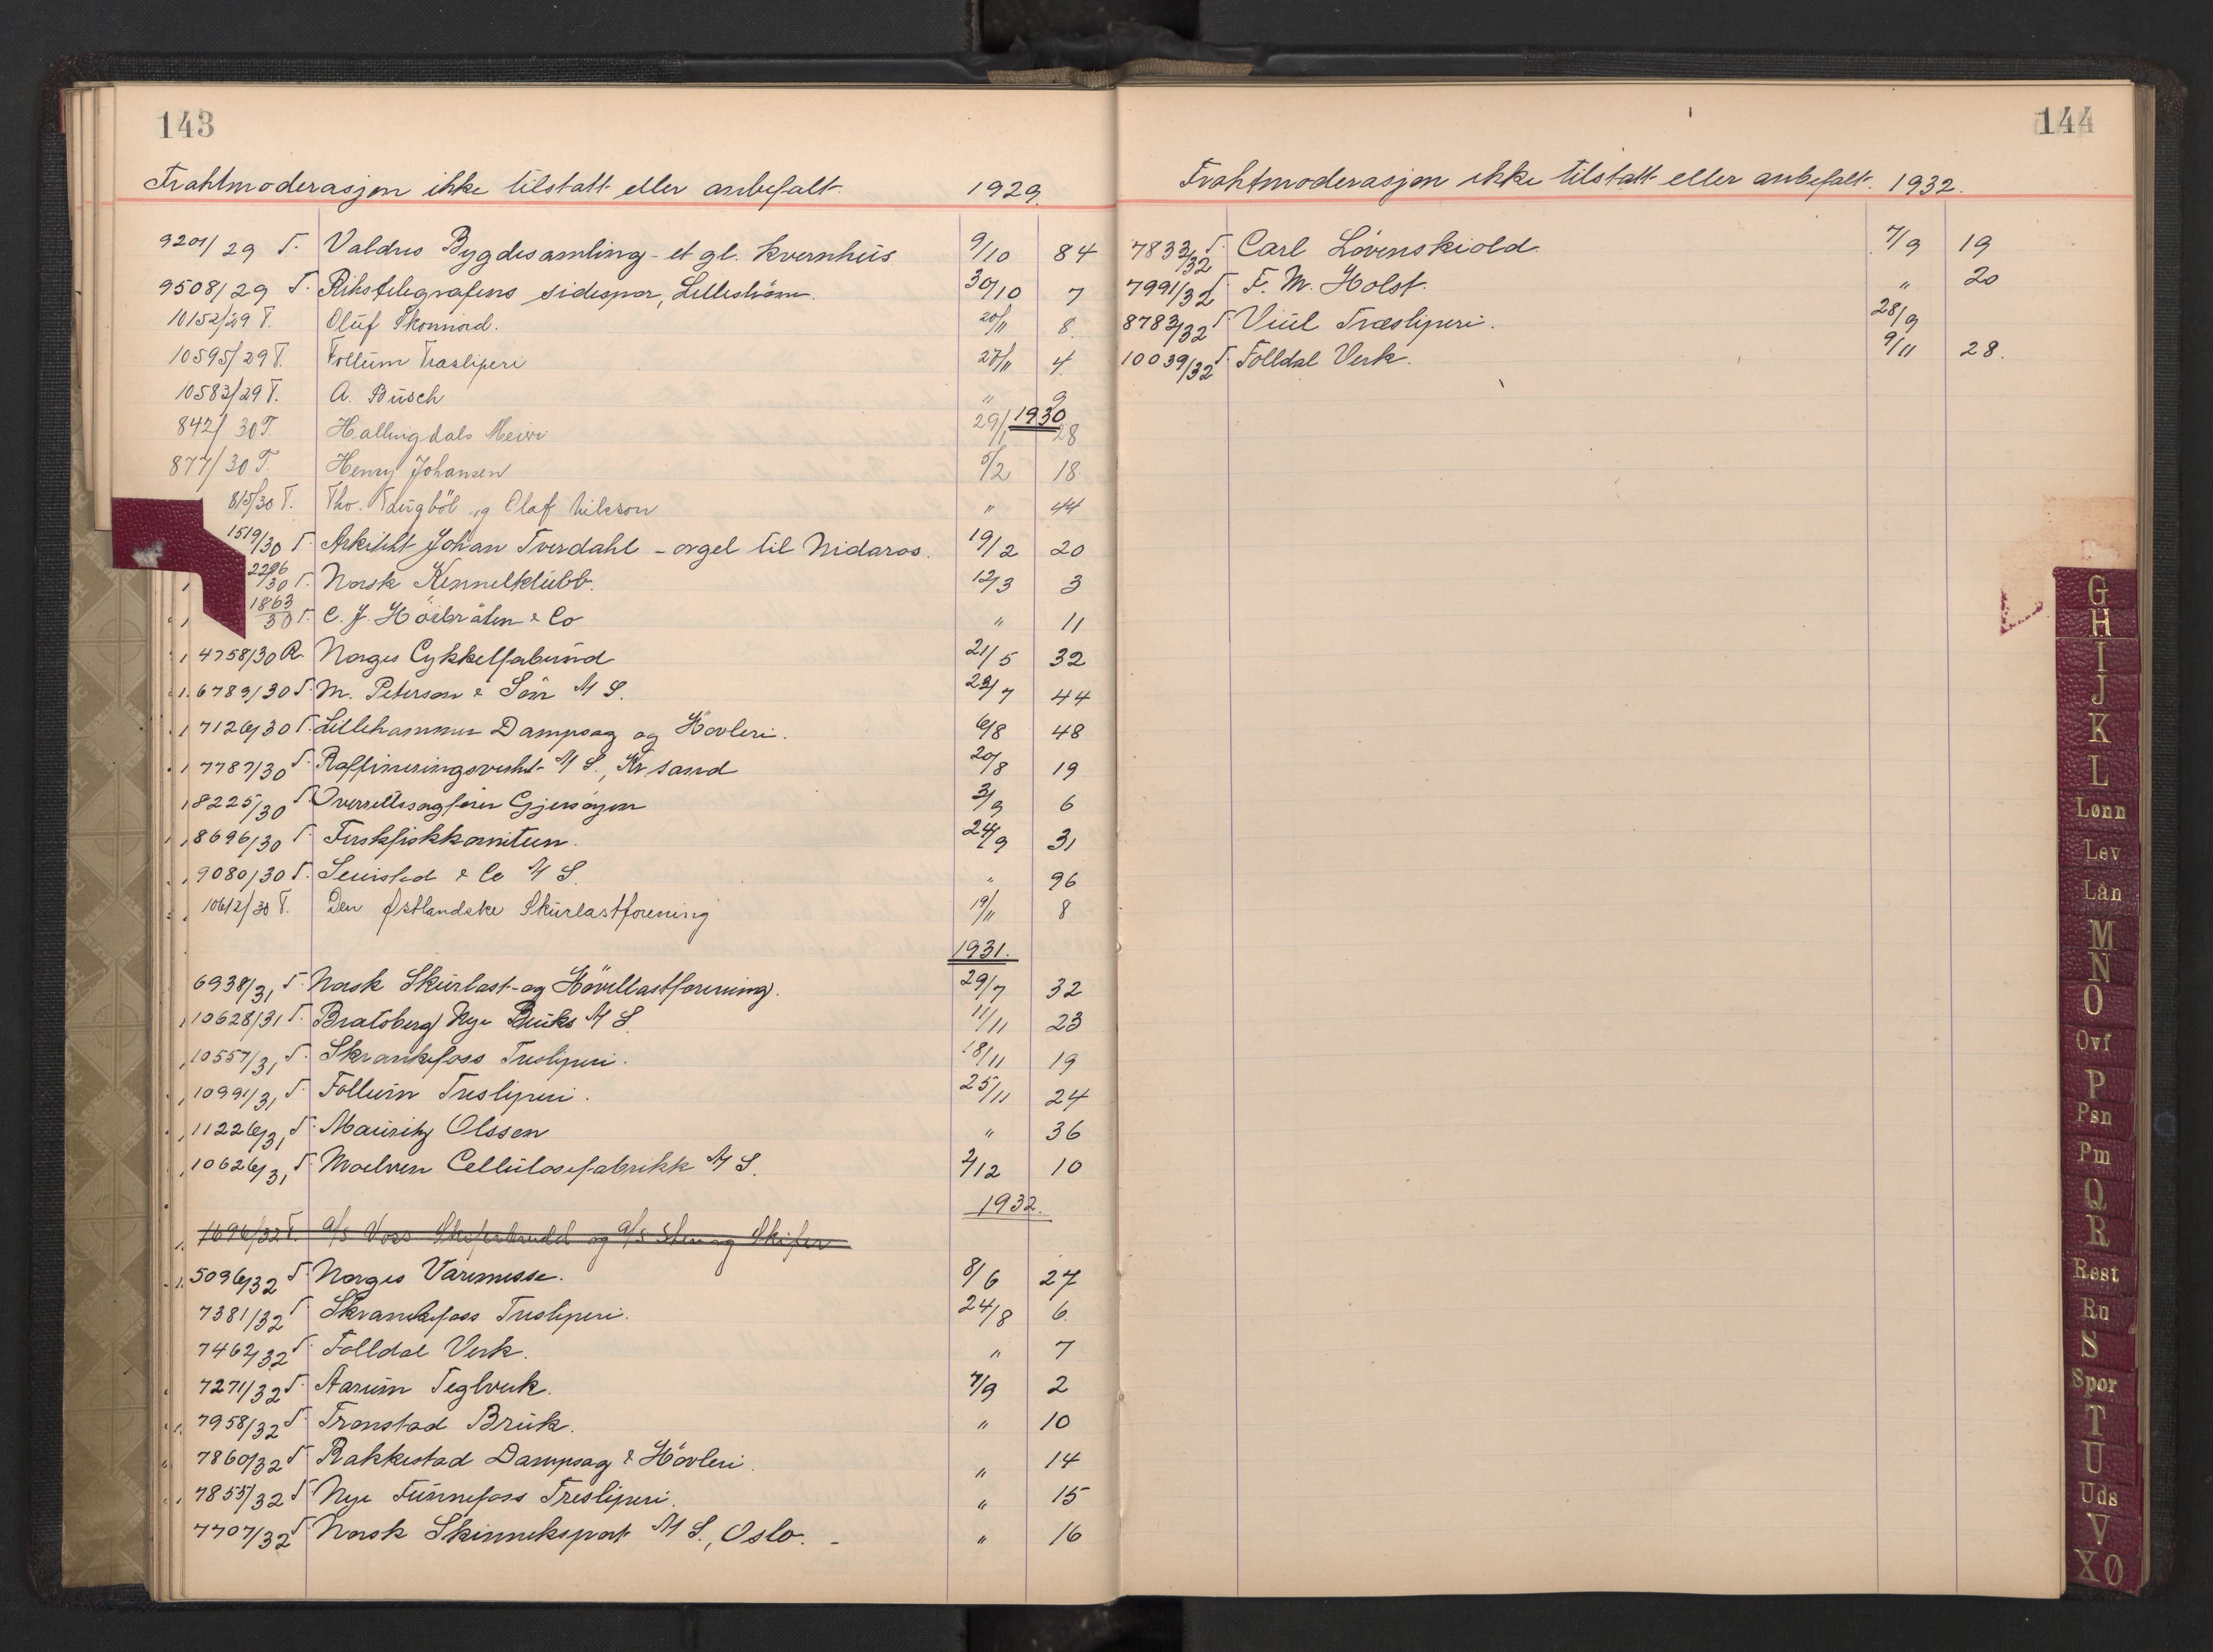 143
Fraktmoderasjon ikke tilstått eller anbefalt. 1929.
9201/29 T. Valdres Bygdesamling - et gl. kvernhus 9/10 84
9508/29 T. Rikstelegrafens sidespor, Lillestrøm. 30/10 7
10152/29 T. Oluf Skonnord. 20/11 8.
10595/29 T. Follum Træsliperi 27/11 4.
10583/29 T. A. Busch " 9
1930
842/30 T. Hallingdals Meieri 29/1 28
877/30 T. Henry Johansen 5/2 18
815/30 T. Tho. og Olaf Nilsson " 44
1519/30 T. Arkitekt Johan Tverdahl - orgel til Nidaros. 19/2 20
2296/30 T. Norsk Kennelklubb. 12/3 3
1863/30 T. C. J. Höibråten & Co " 11
4758/30 R. Norges Cykkelforbund 21/5 32
6783/30 T. M. Peterson & Sön A/S. 23/7 44
7126/30 T. Lillehammer Dampsag og Hövleri. 6/8 48
7787/30 T. Raffineringsverket A/S., Kr.sand 20/8 19
8225/30 T. Overrettssagfører 3/9 6
8696/30 T. Ferskfiskkomiteen. 24/9 31
9080/30 T. & Co A/S. " 96
10612/30 T. Den Østlandske Skurlastforening 19/11 8
1931.
6938/31 T. Norsk Skurlast- og Hövellastforening. 29/7 32
10628/31 T. Bratsberg Nye Bruks A/S. 11/11 23
10557/31 T. Skrankefoss Tresliperi. 18/11 19
10991/31 T. Follum Tresliperi. 25/11 24
11226/31 T. Mauritz Olssen " 36
10626/31 T. Moelven Cellulosefabrikk A/S. 2/12 10
1932.
1696/32 T. a/s Voss Skiferbrudd og a/s Sten og Skifer
5096/32 T. Norges Varemesse. 8/6 27
7381/32 T. Skrankefoss Tresliperi. 24/8 6.
7462/32 T. Folldal Verk. " 7
7271/32 T. Aarum Teglverk. 7/9 2
7958/32 T. Tronstad Bruk. " 10
7860/32 T. Rakkestad Dampsag & Hövleri. " 14
7855/32 T. Nye Funnefoss Tresliperi. " 15
7707/32 T. Norsk Skinneksport A/S., Oslo. - " 16
144
Fraktmoderasjon ikke tilstått eller anbefalt. 1932.
7833/32 T. Carl Lövenskiold. 7/9 19
7991/32 T. F. M. Holst. " 20
8783/32 T. Viul Træsliperi. 28/9
10039/32 T. Folldal Verk. 9/11 28.
G
H
I
J
K
L
Lønn
Lev
Lån
M
N
O
Ovf
P
Psn
Pm
Q
R
Rest
Ru
S
Spor
T
U
Uds
V
XØ